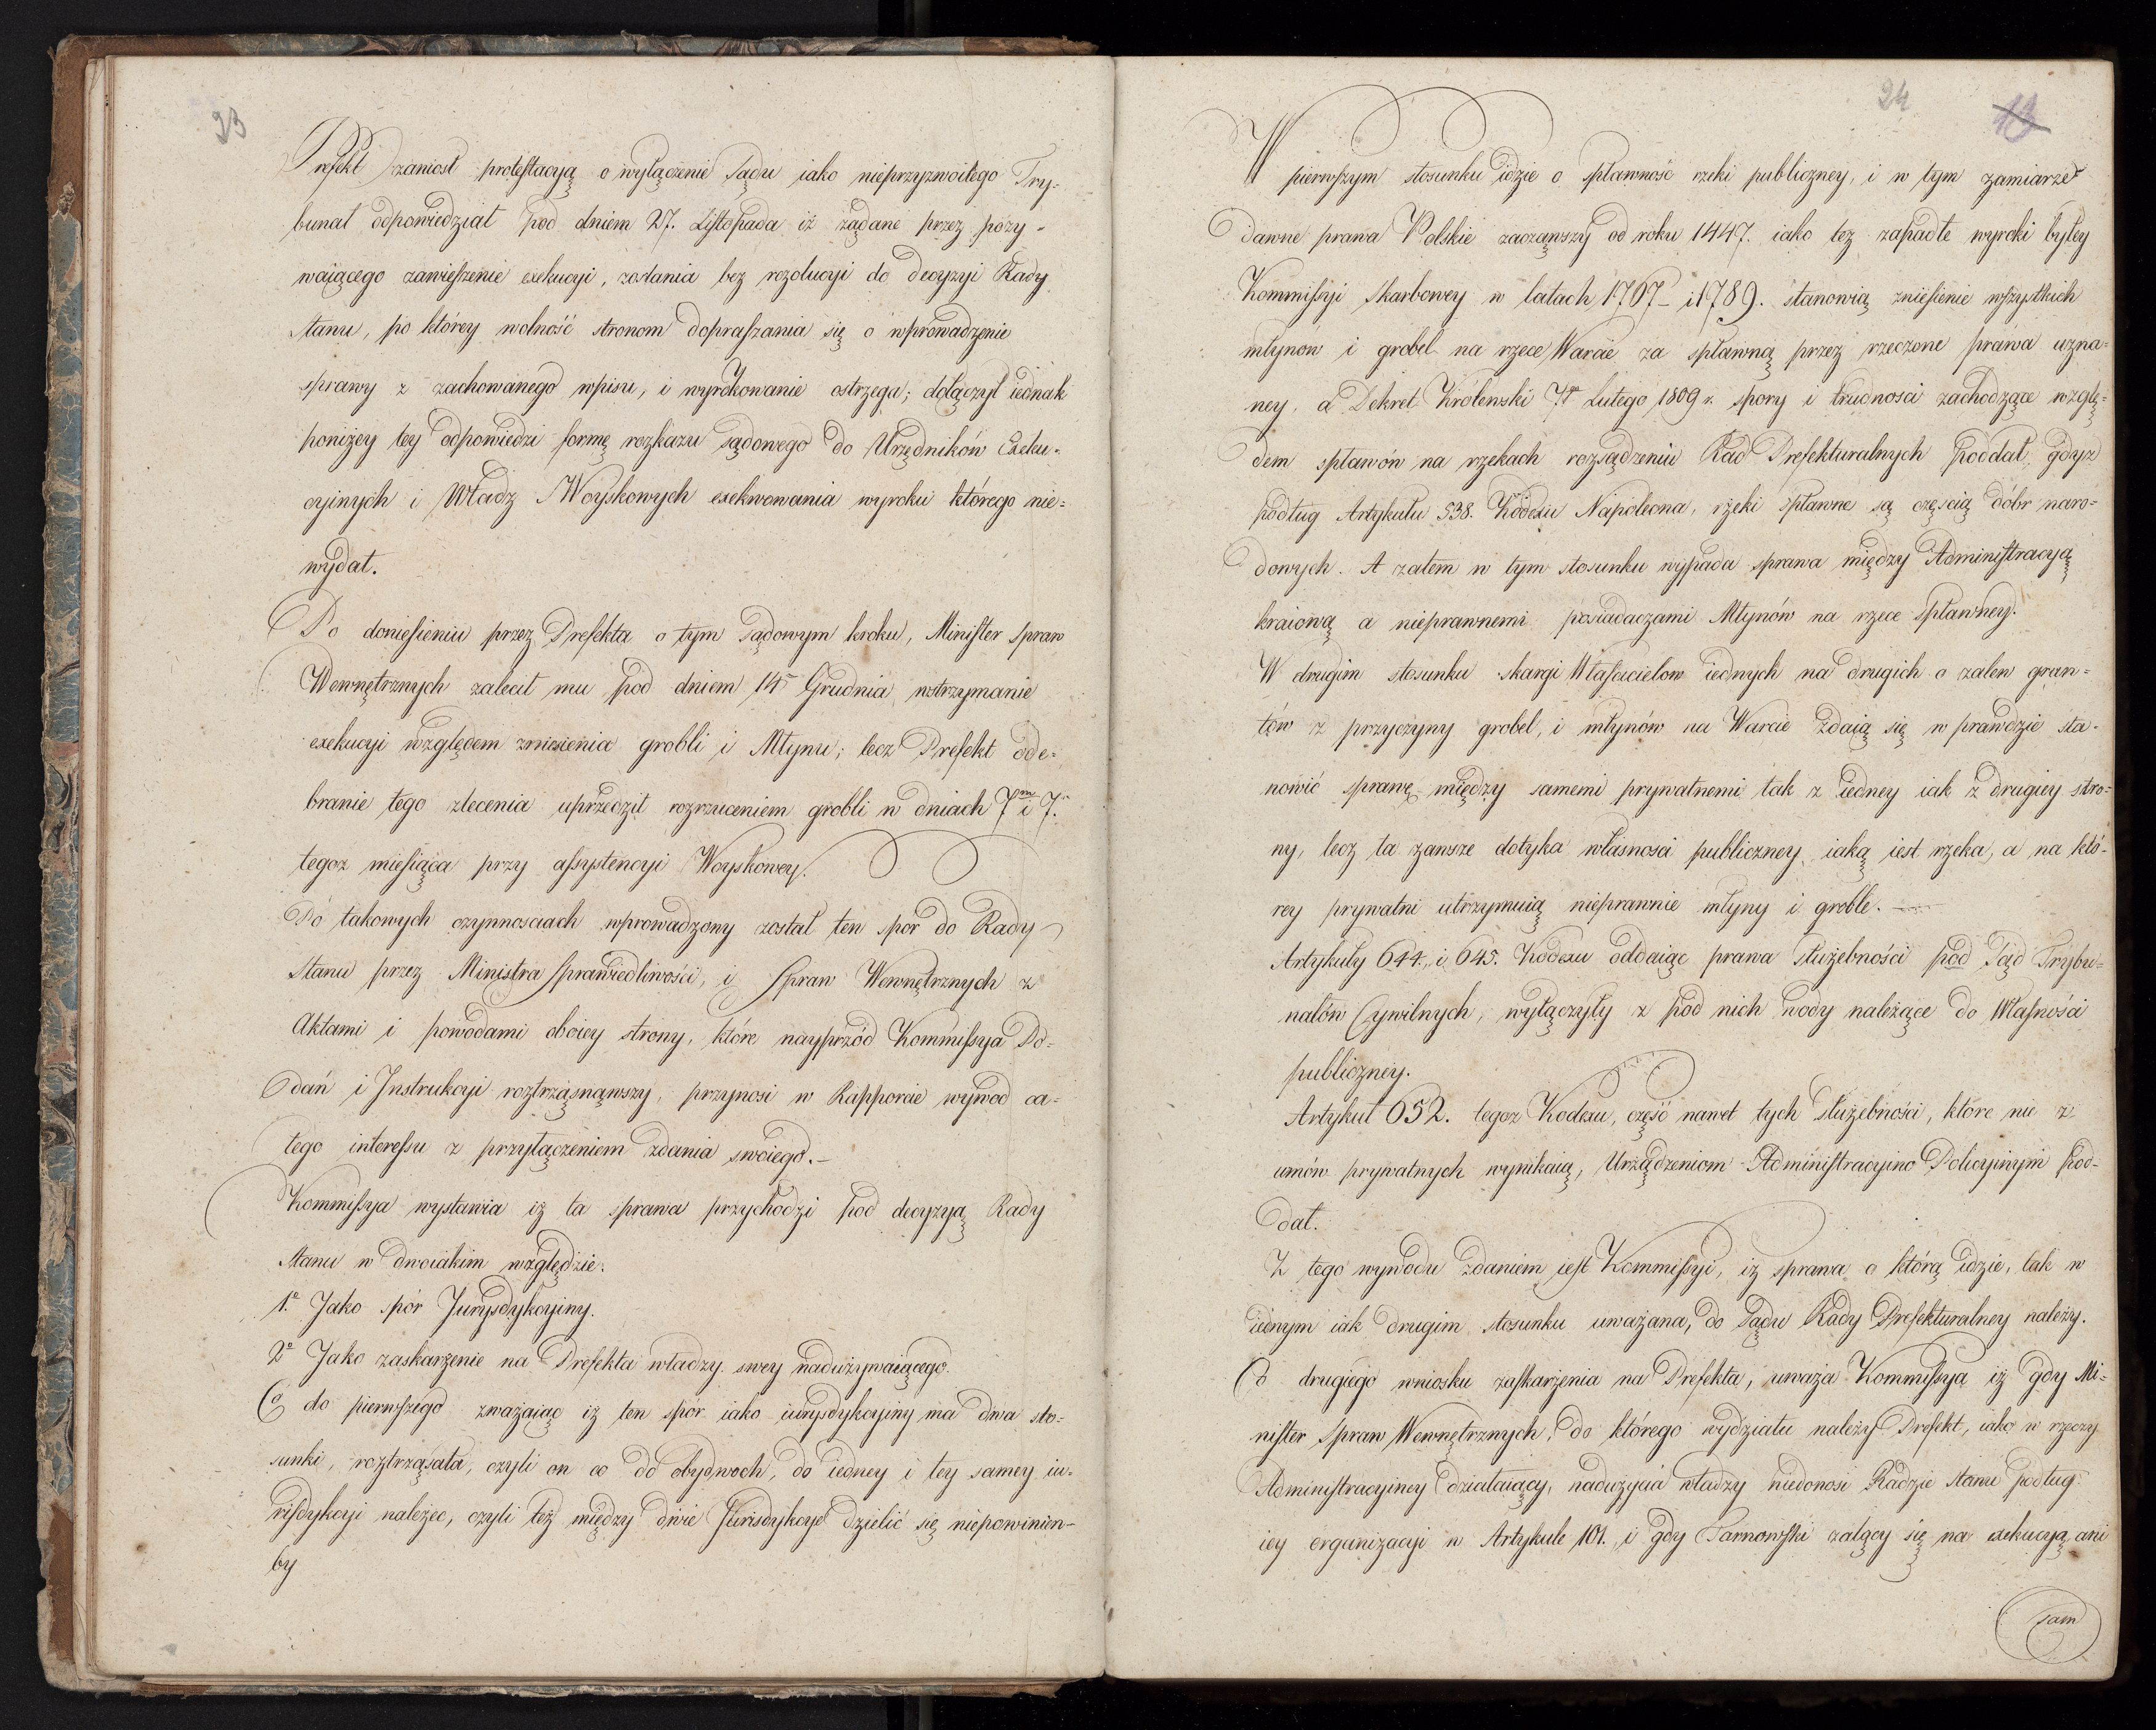 23
Prefekt zaniosł protestacyą o wyłączenie Sądu iako nieprzyzwoitego Try-
bunał odpowiedział pod dniem 27. Listopada iż żądane przez pozy-
waiącego zawieszenie exekucyi, zostania bez rezolucyi do decyzyi Rady
Stanu, po którey wolność stronom dopraszania się o wprowadzenie
sprawy z zachowanego wpisu, i wyrokowanie ostrzega; dołączył iednak
poniżey tey odpowiedzi formę rozkazu sądowego do Urzędników Exeku-
cyinych i Władz Woyskowych exekwowania wyroku którego nie-
wydał.
Po doniesieniu przez Prefekta o tym Sądowym kroku, Minister Spraw
Wewnętrznych zalecił mu pod dniem 14 Grudnia, wstrzymanie
exekucyi względem zniesienia grobli i Młynu; lecz Prefekt ode-
branie tego zlecenia uprzedził rozrzuceniem grobli w dniach i 7.
tegoż miesiąca przy assystencyi Woyskowey.
Po takowych czynnosciach wprowadzony został ten spór do Rady
Stanu przez Ministra Sprawiedliwości, i Spraw Wewnętrznych z
Aktami i powodami oboiey strony, które nayprzód Kommissya Po-
dań i Instrukcyi roztrząsnąwszy, przynosi w Rapporcie wywod ca-
łego interessu z przyłączeniem zdania swoiego.-
Kommissya wystawia iż ta sprawa przychodzi pod decyzyą Rady
Stanu w dwoiakim względzie.
1.e Jako spór Jurysdykcyiny.
2e Jako zaskarżenie na Prefekta władzy swey nadużywaiącego.
Co do pierwszego zważaiąc iż ten spór iako iurysdykcyiny ma dwa sto-
sunki, roztrząsała, czyli on co do obydwoch, do iedney i tey samey iu-
risdykcyi należeć, czyli też między dwie Jurisdykcye dzielić się niepowinien-
by
24
W pierwszym stosunku idzie o spławność rzeki publiczney, i w tym zamiarze
dawne prawa Polskie zacząwszy od roku 1447. iako też zapadłe wyroki byłey
Kommissyi Skarbowey w latach 1767 - i 1789. stanowią zniesienie wszystkich
młynów i grobel na rzece Warcie za spławną przez rzeczone prawa uzna-
ney, a Dekret Królewski Lutego 1809 r. spory i trudności zachodzące wzglę-
dem spławów na rzekach rozsądzeniu Rad Prefekturalnych poddał, gdyż
podług Artykułu 538. Kodexu Napoleona, rzeki spławne są częścią dóbr naro-
dowych. A zatem w tym stosunku wypada sprawa między Administracyą
kraiową a nieprawnemi posiadaczami Młynów na rzece spławney.
W drugim stosunku skargi Własicielow iednych na drugich o zalew grun-
tów z przyczyny grobel, i młynów na Warcie zdaią się w prawdzie sta-
nowić sprawę między samemi prywatnemi tak z iedney iak z drugiey stro-
ny, lecz ta zawsze dotyka własnosci publiczney iaką iest rzeka, a na któ-
rey prywatni utrzymuią nieprawnie młyny i groble.
Artykuły 644. i 645. Kodexu oddaiąc prawa służebności pod Sąd Trybu-
nałów Cywilnych, wyłączyły z pod nich wody należące do Własności
publiczney.
Artykuł 652. tegoż Kodexu, część nawet tych służebności, które nie z
umów prywatnych wynikaią, Urządzeniom Administracyino Policyinym pod-
dał.
Z tego wywodu zdaniem iest Kommissyi, iż sprawa o którą idzie, tak w
iednym iak drugim stosunku uważana, do Sądu Rady Prefekturalney należy.
Co drugiego wniosku zaskarżenia na Prefekta, uważa Kommissya iż gdy Mi-
nister Spraw Wewnętrznych, do którego wydziału należy Prefekt, iako w rzeczy
Administracyiney działaiący, nadużycia władzy niedonosi Radzie Stanu podług
iey organizacyi w Artykule 101., i gdy Tarnowski żalący się na exekucyą ani
sam